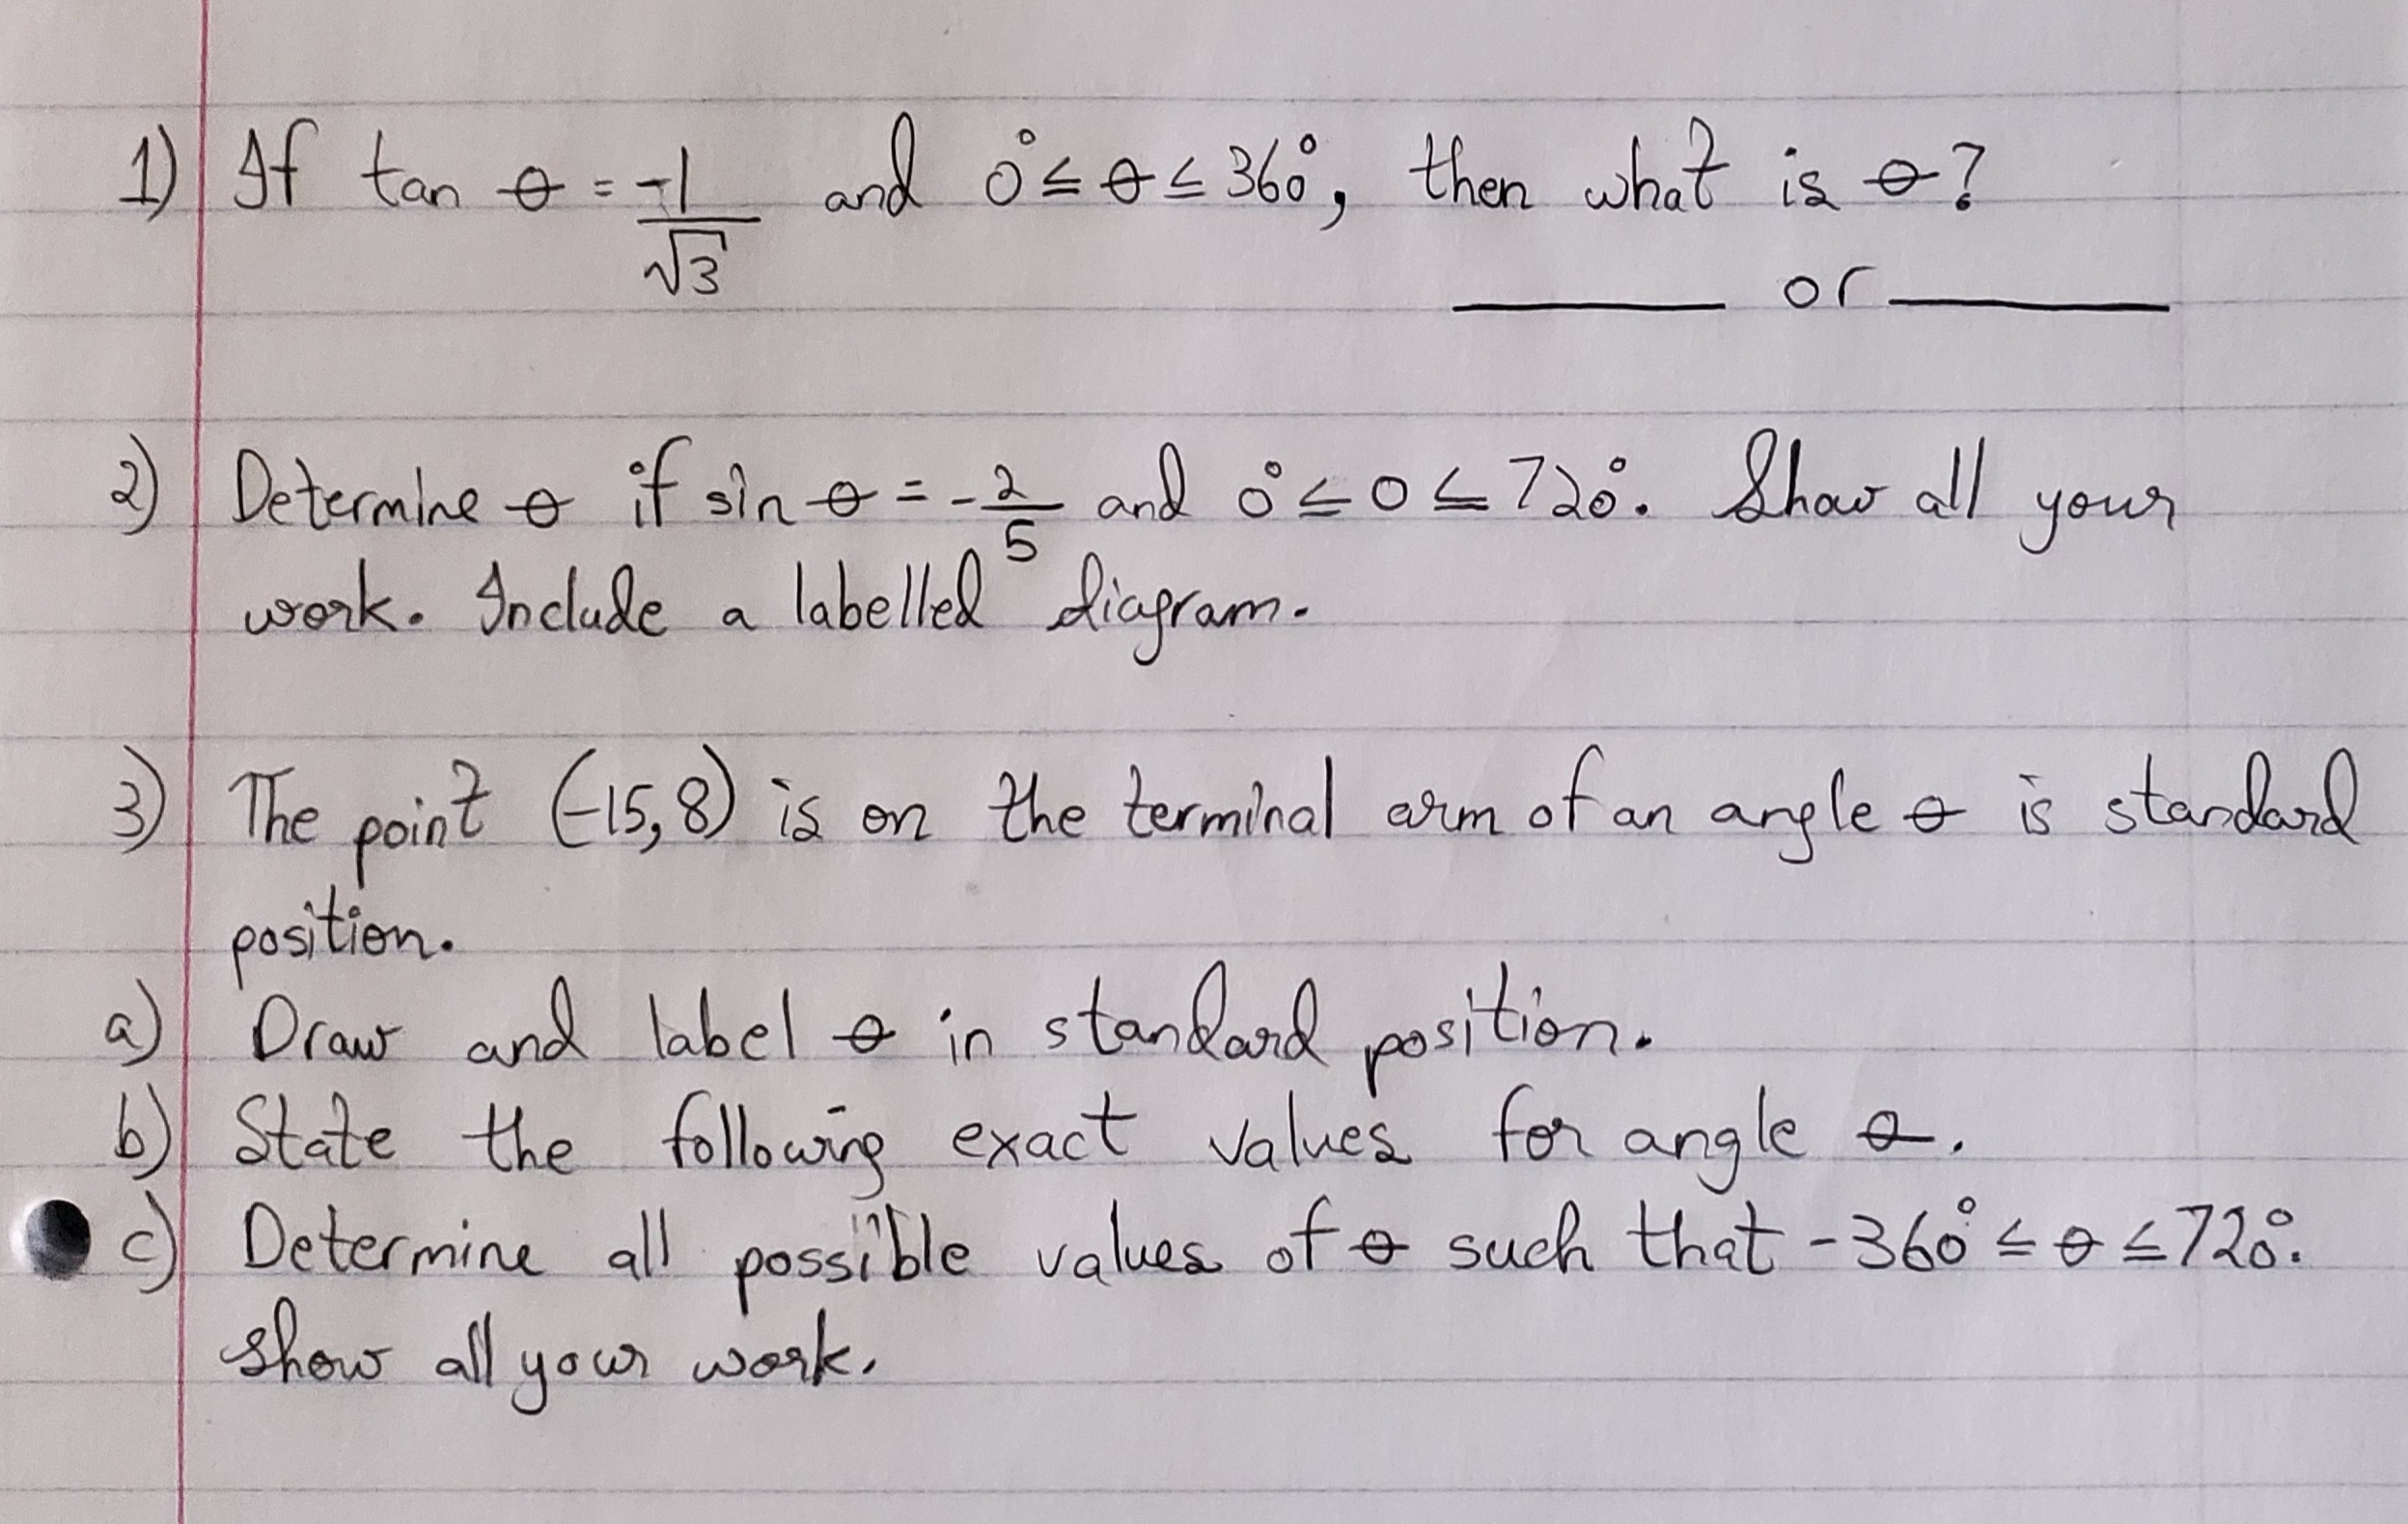 1) If tan θ = -1/√3 and 0° ≤ θ ≤ 360°, then what is θ?
______ or ______
2) Determine θ if sin θ = -2/5 and 0° ≤ 0 ≤ 720°. Show all your
work. Include a labelled diagram.
3) The point (-15,8) is on the terminal arm of an angle θ is standard
position.
a) Draw and label θ in standard position.
b) State the following exact values for angle θ.
c) Determine all possible values of θ such that -360° ≤ θ ≤ 720°.
Show all your work.